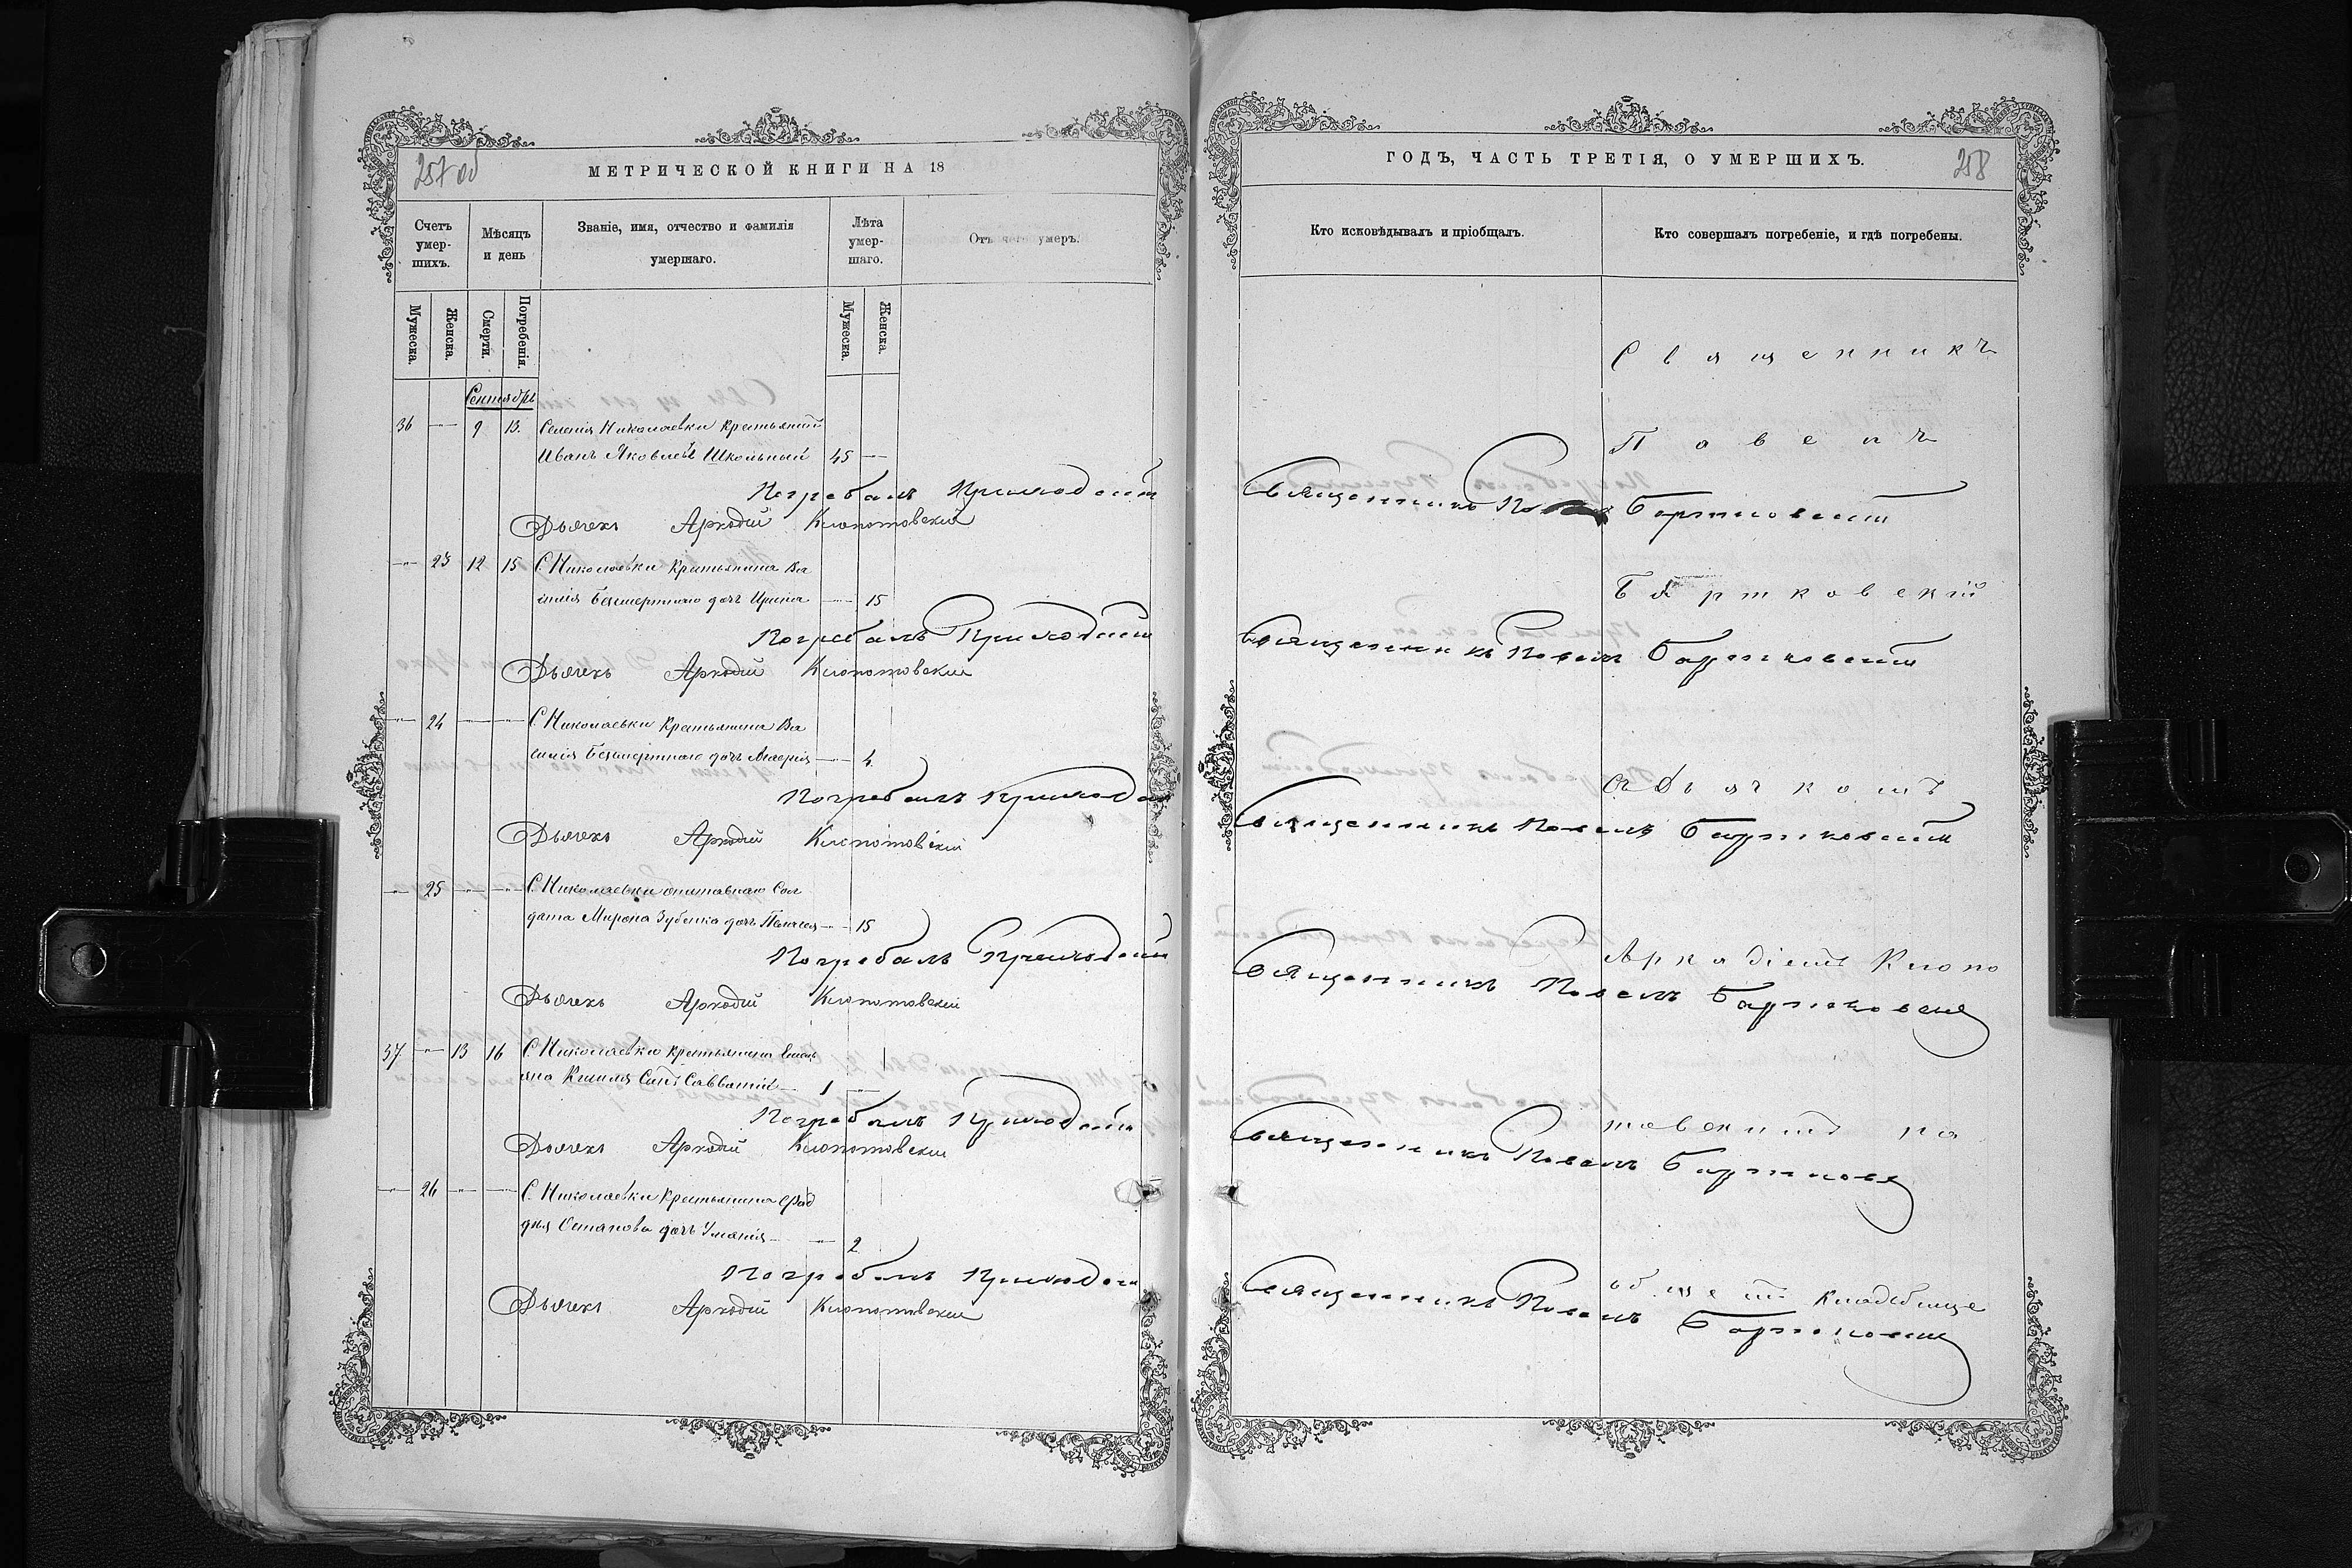 257 об
МЕТРИЧЕСКОЙ КНИГИ НА 18
Счетъ умер-шихъ.
Мѣсяцъ и день
Званіе, имя, отчество и фамилія умершаго.
Лѣта умер-шаго.
Отъ чего умеръ.
Мужеска.
Женска.
Смерти.
Погребенія.
Мужеска.
Женска.
Сентябрь
36 — 9 13. Селенія Николаевки крестьянинъ
Иванъ Яковлевъ Школьный 45 —
Погребалъ Приходскій
Дьячекъ Аркадій Клопотовскій
— 23 12 15 С. Николаевки крестьянина Ва
силія Безсмертнаго дочь Ирина — 15
Погребалъ Приходскій
Дьячекъ Аркадій Клопотовскій
— 24 — — С. Николаевки Крестьянина Ва
силія Безсмертнаго дочь — 4.
Погребалъ Приходскій
Дьячекъ Аркадій Клопотовскій
— 25 — — С. Николаевки отставнаго Сол
дата Мирона Зубенка дочь — 15
Погребалъ Приходскій
Дьячекъ Аркадій Клопотовскій
37 — 13 16 С. Николаевки крестьянина Емель
яна Сынъ Савватій — 1 —
Погребалъ Приходскій
Дьячекъ Аркадій Клопотовскій
— 26 — — С. Николаевки Крестьянина
Остапова дочь — 2
Погребалъ Приходскій
Дьячекъ Аркадій Клопотовскій
ГОДЪ, ЧАСТЬ ТРЕТІЯ, О УМЕРШИХЪ.
258
Кто исковѣдывалъ и пріобщалъ.
Кто совершалъ погребеніе, и гдѣ погребены.
Священникъ
Павелъ
Священникъ Бартковскій
Бартковскій
Священникъ Павелъ Бартковскій
съ Дьячкомъ
Священникъ Павелъ Бартковскій
Аркадіемъ Клопо
Священникъ Павелъ Бартковскій
товскимъ на
Священникъ Павелъ Бартковскій
общемъ кладбище
Священникъ Павелъ Бартковскій